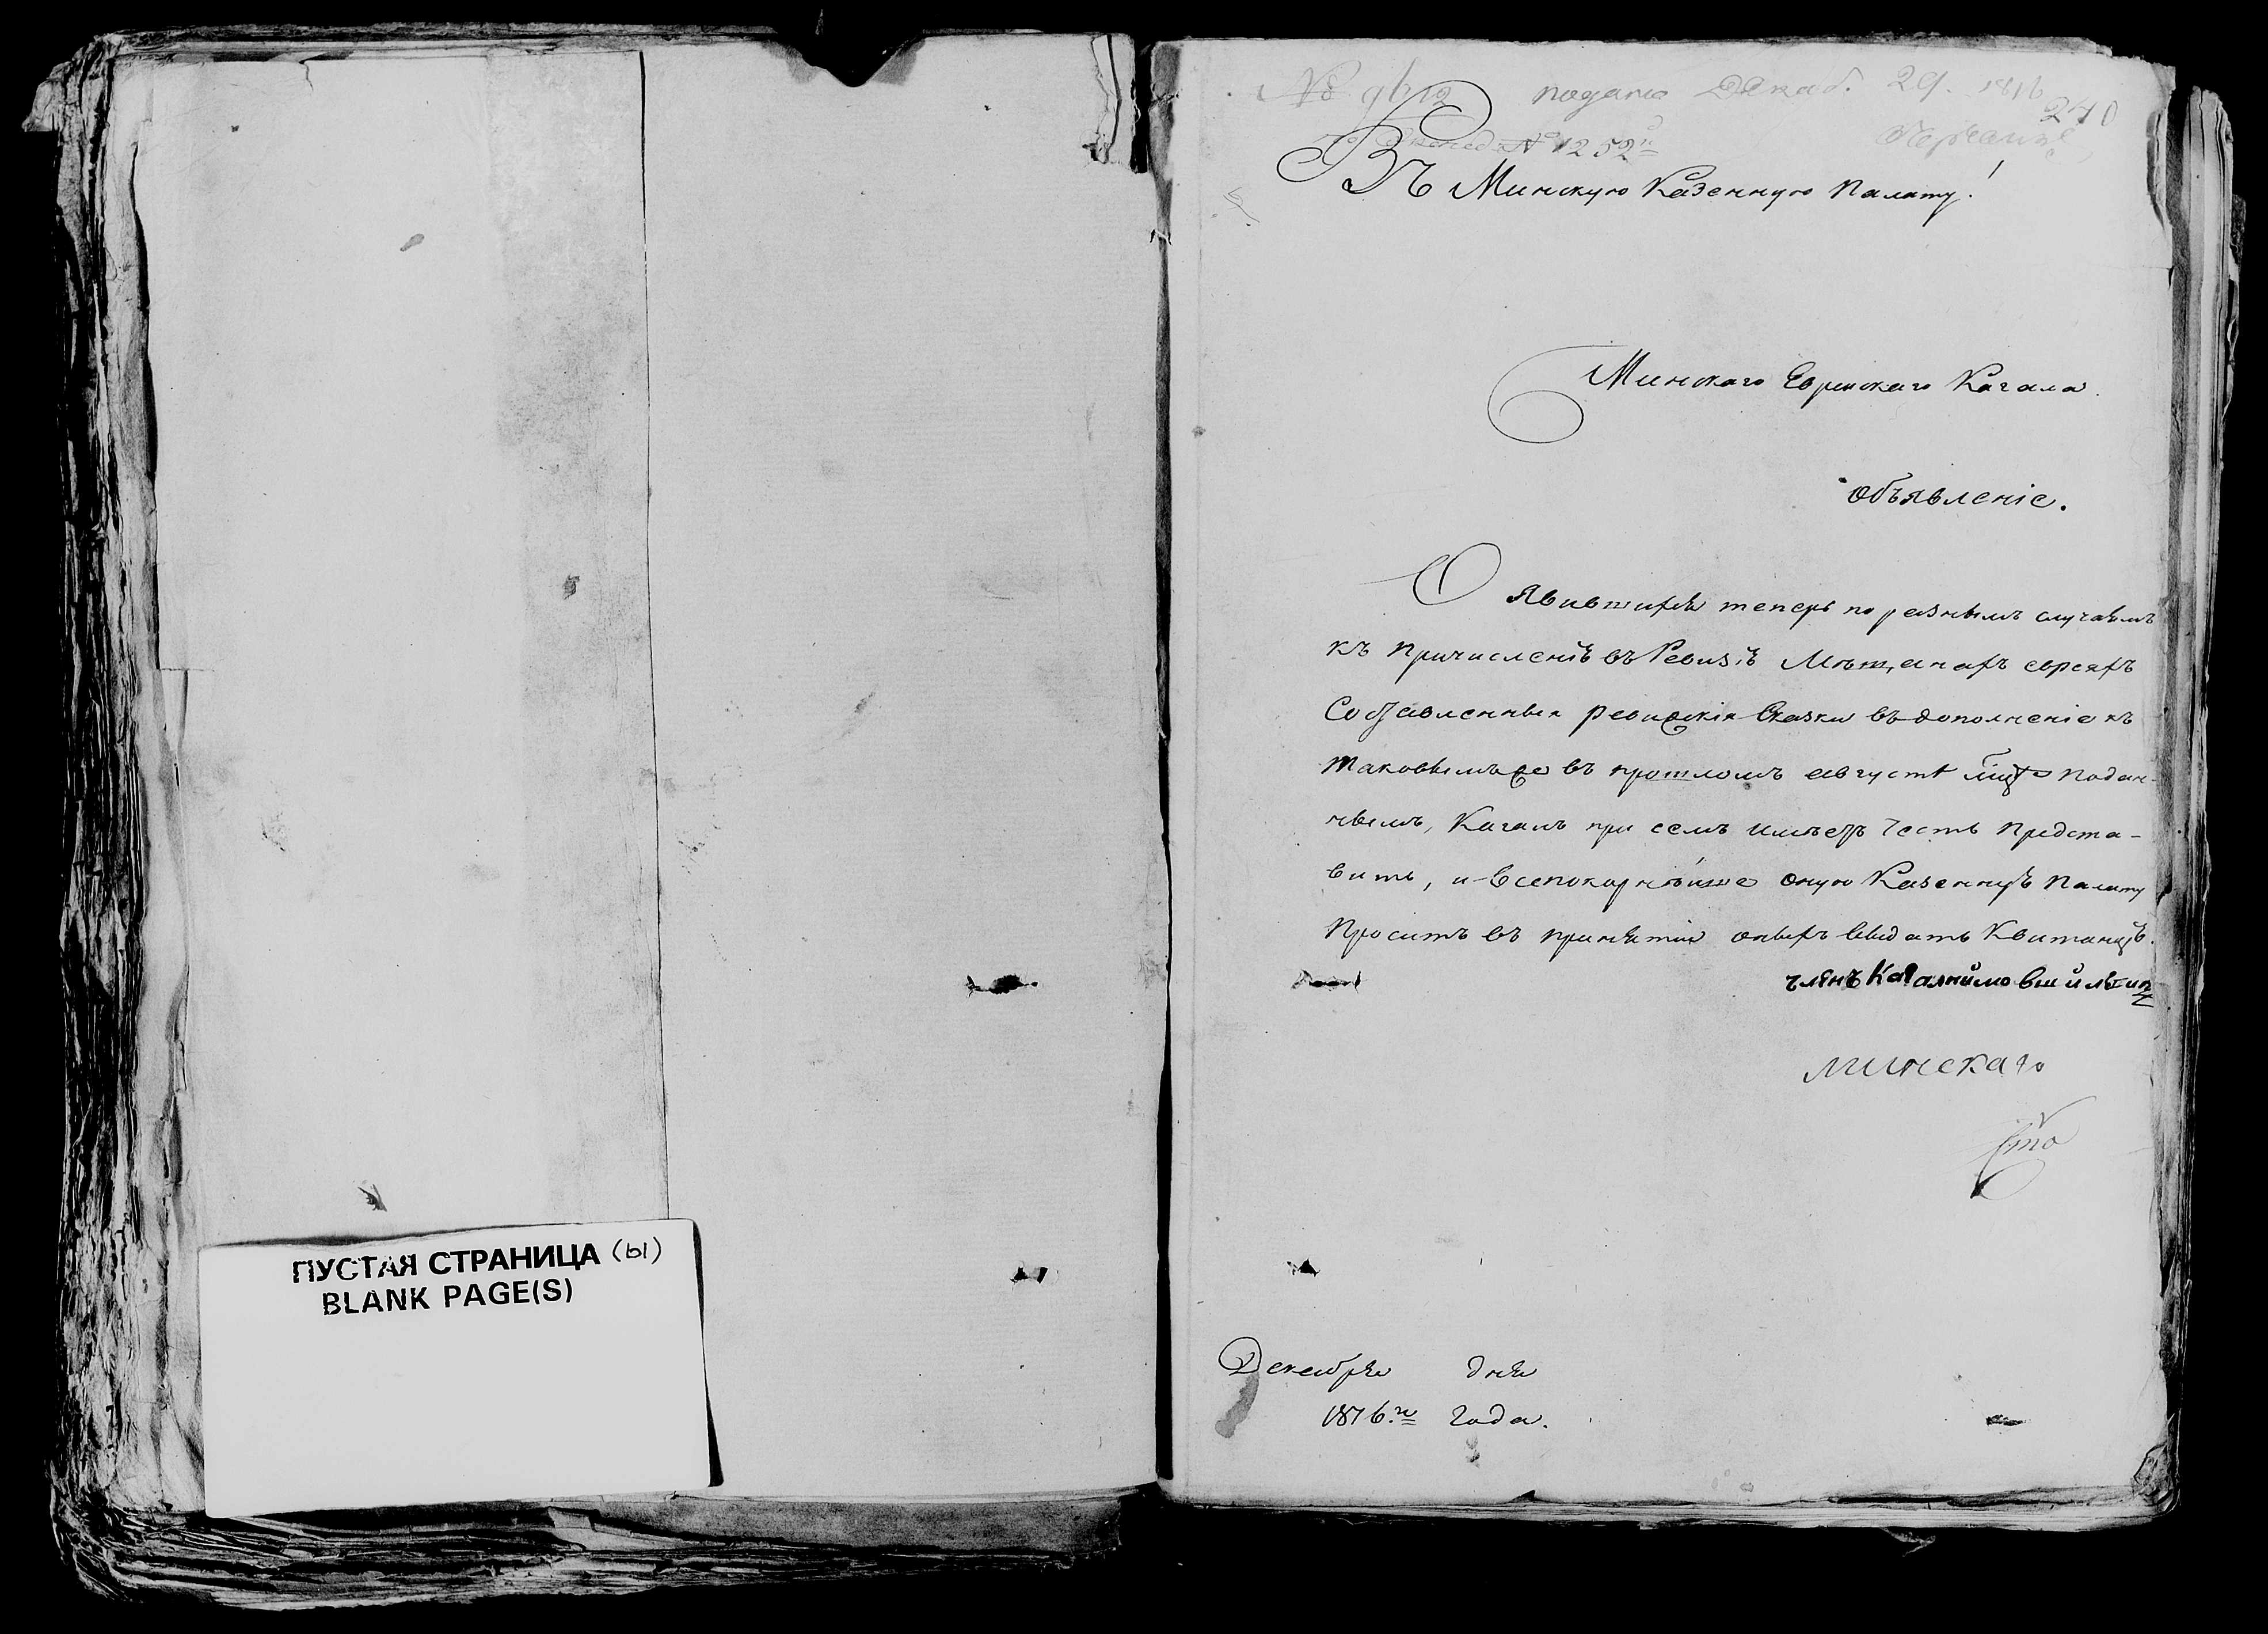 ПУСТАЯ СТРАНИЦА (Ы)
BLANK PAGE(S)
№ 9612 подано Декаб. 29. 1816
240
№ 1252й
Въ Минскую Казенную Палату!
Минскаго Еврейскаго Кагала
Объявленіе.
О явившихся теперь по разнымъ случаямъ
къ причисленію въ Ревизію Мѣщанахъ евреяхъ
Составленныя ревизскія Сказки въ дополненіе къ
таковымъ же въ прошломъ августѣ м-цѣ подан-
нымъ, Кагалъ при семъ имѣетъ честь предста-
вить, и всепокорнѣйше оную Казенную Палату
Проситъ въ принятіи оныхъ выдать Квитанцію.
члѣнъ Кагалний мовша
минскаго
Декабря дня
1816го Года.